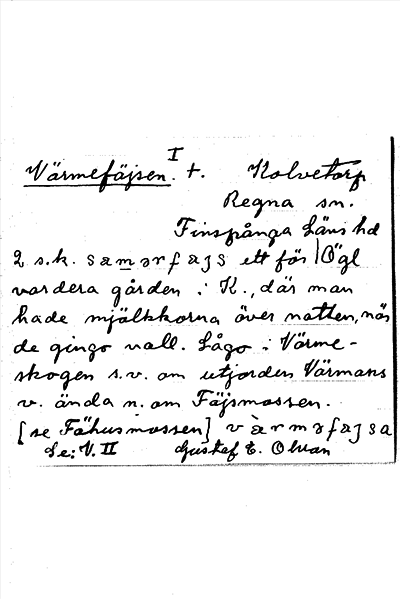 Värmefäjsen. I t. Kolvetorp
Regna sn.
Finspånga läns hd
2 s.k. samərfajs ett för Ögl
vardera gården i K., där man
hade mjölkkorna över natten, när
de gingo vall. Lågo i Värme-
skogen s.v. om utjorden Värmans
v. ända n. om Fäjsmossen.
[se Fähusmossen] värməfajsa
Se: V. II Gustaf E. Olvan